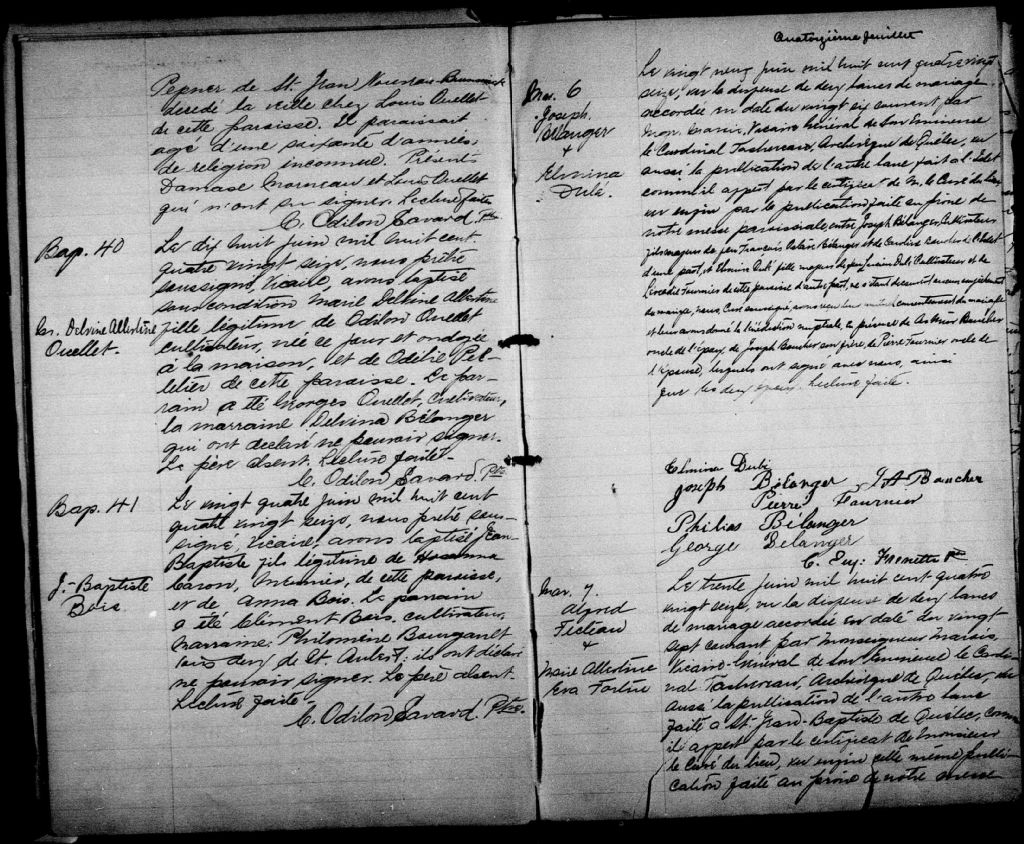 de St. Jean Nouveau Brunswick
décédé la veille chez Louis Ouellet
de cette paroisse. Il paraissait
agé d'une soixante d'années,
de religion inconnue. Présents
Damase Morneau et Louis Ouellet
qui n'ont su signer. Lecture faite
C. Odilon Savard, Ptre
Bap. 40
Delvine Albertine
Ouellet.
Le dix huit juin mil huit cent
quatre vingt seize, nous prêtre
soussigné, vicaire, avons baptisé
sous condition Marie Delvine Albertine
fille légitime de Odilon Ouellet
cultivateur, née ce jour et ondoyée
à la maison, et de Odélie Pel-
letier de cette paroisse. Le par-
rain a été Georges Ouellet, cultivateur,
la marraine Delvina Bélanger
qui ont déclaré ne pouvoir signer.
Le père absent. Lecture faite.
C. Odilon Savard, Ptre
Bap. 41
J.-Baptiste
Bois
Le vingt quatre juin mil huit cent
quatre vingt seize, nous prêtre sous-
signé, vicaire, avons baptisé, Jean-
Baptiste fils légitime de
Caron, de cette paroisse,
et de Anna Bois. Le parrain
a été Clément Bois, cultivateur,
marraine, Philomène Bourgault
tous deux de St. Aubert; ils ont déclaré
ne pouvoir signer. Le père absent.
Lecture faite.
C. Odilon Savard Ptre.
Quatorzième feuillet
Mar. 6
Joseph
Bélanger
+
Elmina
Dubé.
Le vingt neuf juin mil huit cent quatre vingt
seize, vu la dispense de deux bancs de mariage
accordée en date du vingt six courant, par
Mgr. Marois, Vicaire Général de Son Eminence
le Cardinal Taschereau, Archevêque de Québec, vu
aussi la publication de l'autre banc fait à l'Islet
comme il appert par le certificat de M. le Curé du lieu,
vu enfin par la publication faite au prône de
notre messe paroissiale entre Joseph Bélanger, cultivateur
fils majeur de feu François Bélanger et de Caroline Boucher de l'Islet
d'une part, et Elmina Dubé fille majeure de feu Dubé cultivateur et de
Fournier de cette paroisse d'autre part, ne s'étant découvert aucun empêchement
au mariage, nous Curé soussigné, avons reçu leur mutuel consentement de mariage
et leur avons donné la bénédiction nuptiale, en présence de Boucher
oncle de l'époux, de Joseph Boucher son frère, de Pierre Fournier oncle de
l'épouse, lesquels ont signé avec nous, ainsi
que les deux époux. Lecture faite.
Elmina Dubé
Joseph Bélanger J A Boucher
Pierre Fournier
Philias Bélanger
George Belanger
C. Eug. Frenette Ptre
Mar. 7.
Alfred
Fecteau
+
Marie Albertine
Eva Fortin
Le trente juin mil huit cent quatre
vingt seize, vu la dispense de deux bancs
de mariage accordée en date du vingt
sept courant par Monseigneur Marois,
Vicaire-Général de Son Eminence le Cardi-
nal Taschereau, Archevêque de Québec, vu
aussi la publication de l'autre banc
faite à St. Jean-Baptiste de Québec, comme
il appert par le certificat de Monsieur
le Curé du lieu, vu enfin cette même publi-
cation faite au prône de notre messe